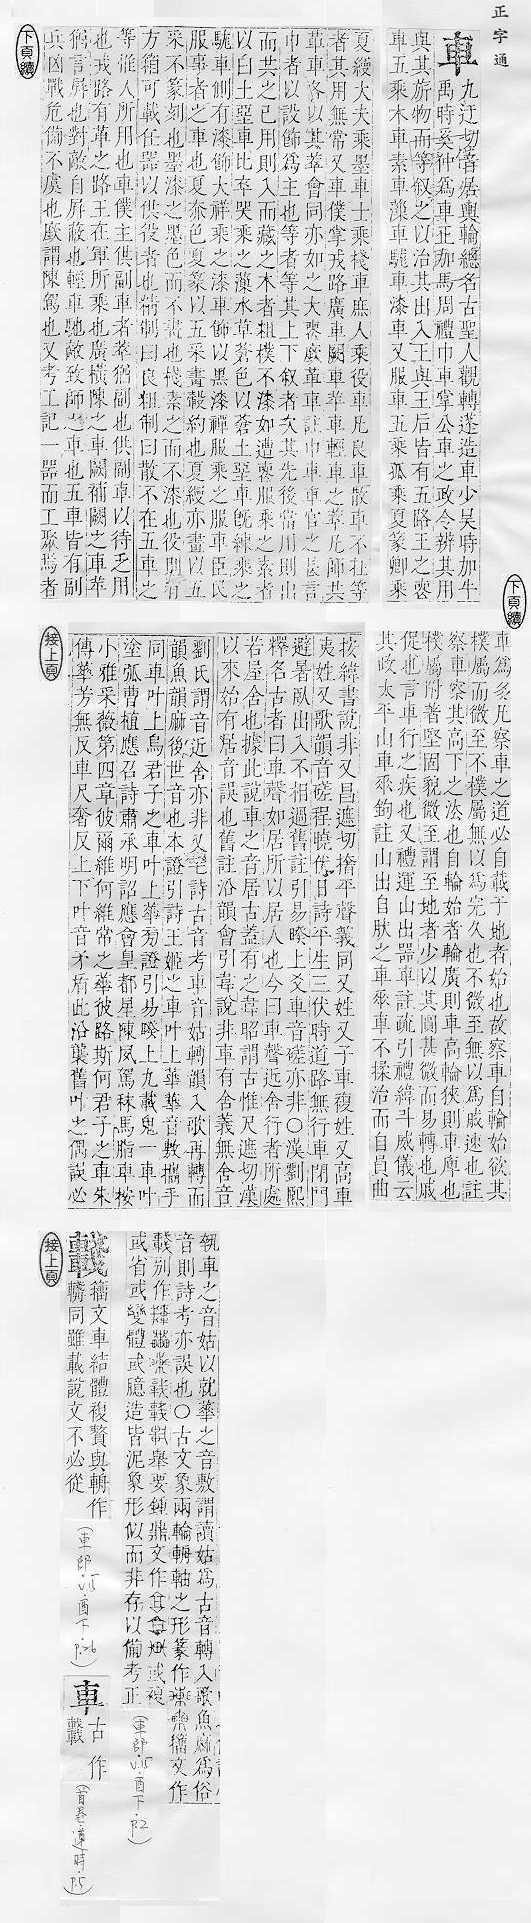 正字通
車
九迂切音居輿輪總名古聖人觀轉蓬造車少昊時加牛
禹時奚仲為車正加馬周禮巾車掌公車之政令辨其用
與其旂物而等叙之以治其出入王與王后皆有五路王之喪
車五乘木車素車藻車駹車漆車又服車五乘孤乘夏篆卿乘
夏縵大夫乘墨車士乘棧車庶人乘役車凡良車散車不在等
者其用無常又車僕掌戎路廣車闕車苹車輕車之萃凡師共
革車各以其萃會同亦如之大喪廞革車註巾車車官之長註
巾者以設飾為主也等者等其上下叙者次其先後常用則出
而共之已用則入而藏之木者粗樸不漆如遭喪服乘之素者
以白土堊車比卒哭乘之藻水草蒼色以蒼土堊車旣練乘之
駹車側有漆飾大祥乘之漆車飾以黑漆禫服乘之服車臣民
服事者之車也夏赤色夏篆以五采畫轂約也夏縵亦畫以五
采不篆刻也墨漆之墨色而不畫也棧素之而不漆也役則有
方箱可載任器以供役者也精制曰良粗制曰散不在五車之
等惟人所用也車僕主供副車者萃猶副也供副車以待乏用
也戎路有革之路王在軍所乘也廣橫陳之車闕補闕之車苹
猶言屏也對敵自屏蔽也輕車馳敵致師之車也五車皆有副
兵凶戰危備不虞也廞謂陳駕也又考工記一器而工聚焉者
下頁續
下頁續
車為多凡察車之道必自載于地者始也故察車自輪始欲其
樸屬而微至不樸屬無以為完久也不微至無以為戚速也註
察車察其高下之法也自輪始者輪廣則車高輪狹則車庳也
樸屬附著堅固貌微至謂至地者少以其圜甚微而易轉也戚
促也言車行之疾也又禮運山出器車註疏引禮緯斗威儀云
其政太平山車乘鉤註山出自然之車乘車不揉治而自員曲
接上頁
核緯書說非又昌遮切撦平聲義同又姓又子車複姓又高車
夷姓又歌韻音磋程曉伏日詩平生三伏時道路無行車閉門
避暑臥出入不相過舊註引易睽上爻車音磋亦非〇漢劉熙
釋名古者曰車聲如居所以居人也今曰車聲近舍行者所處
若屋舍也據此說車之音居古蓋有之韋昭謂古惟尺遮切漢
以來始有居音誤也舊註沿韻會引韋說非車有舍義無舍音
劉氏謂音近舍亦非又毛詩古音考車音姑轉韻入歌再轉而
韻魚韻麻後世音也本證引詩王姬之車叶上華華音敷攜手
同車叶上烏君子之車叶上華旁證引易睽上九載鬼一車叶
塗弧曹植應召詩肅承明詔應會皇都星陳夙駕秣馬脂車按
小雅采薇第四章彼爾維何維常之華彼路斯何君子之車朱
傳華芳無反車尺奢反上下叶音矛盾此沿襲舊叶之偶誤必
執車之音姑以就華之音敷謂讀姑為古音轉入歌魚麻為俗
音則詩考亦誤也〇古文象兩輪輈軸之形篆作
籀文作
或省或變體或臆造皆泥象形似而非存以備考正
(車部.卯15.酉下.P.2)
接上頁
籀文車結體複贅與輈作
轔同雖載說文不必從
(車部.卯15.酉下.P.26)
車 古作
(首卷.遵時.P.5)